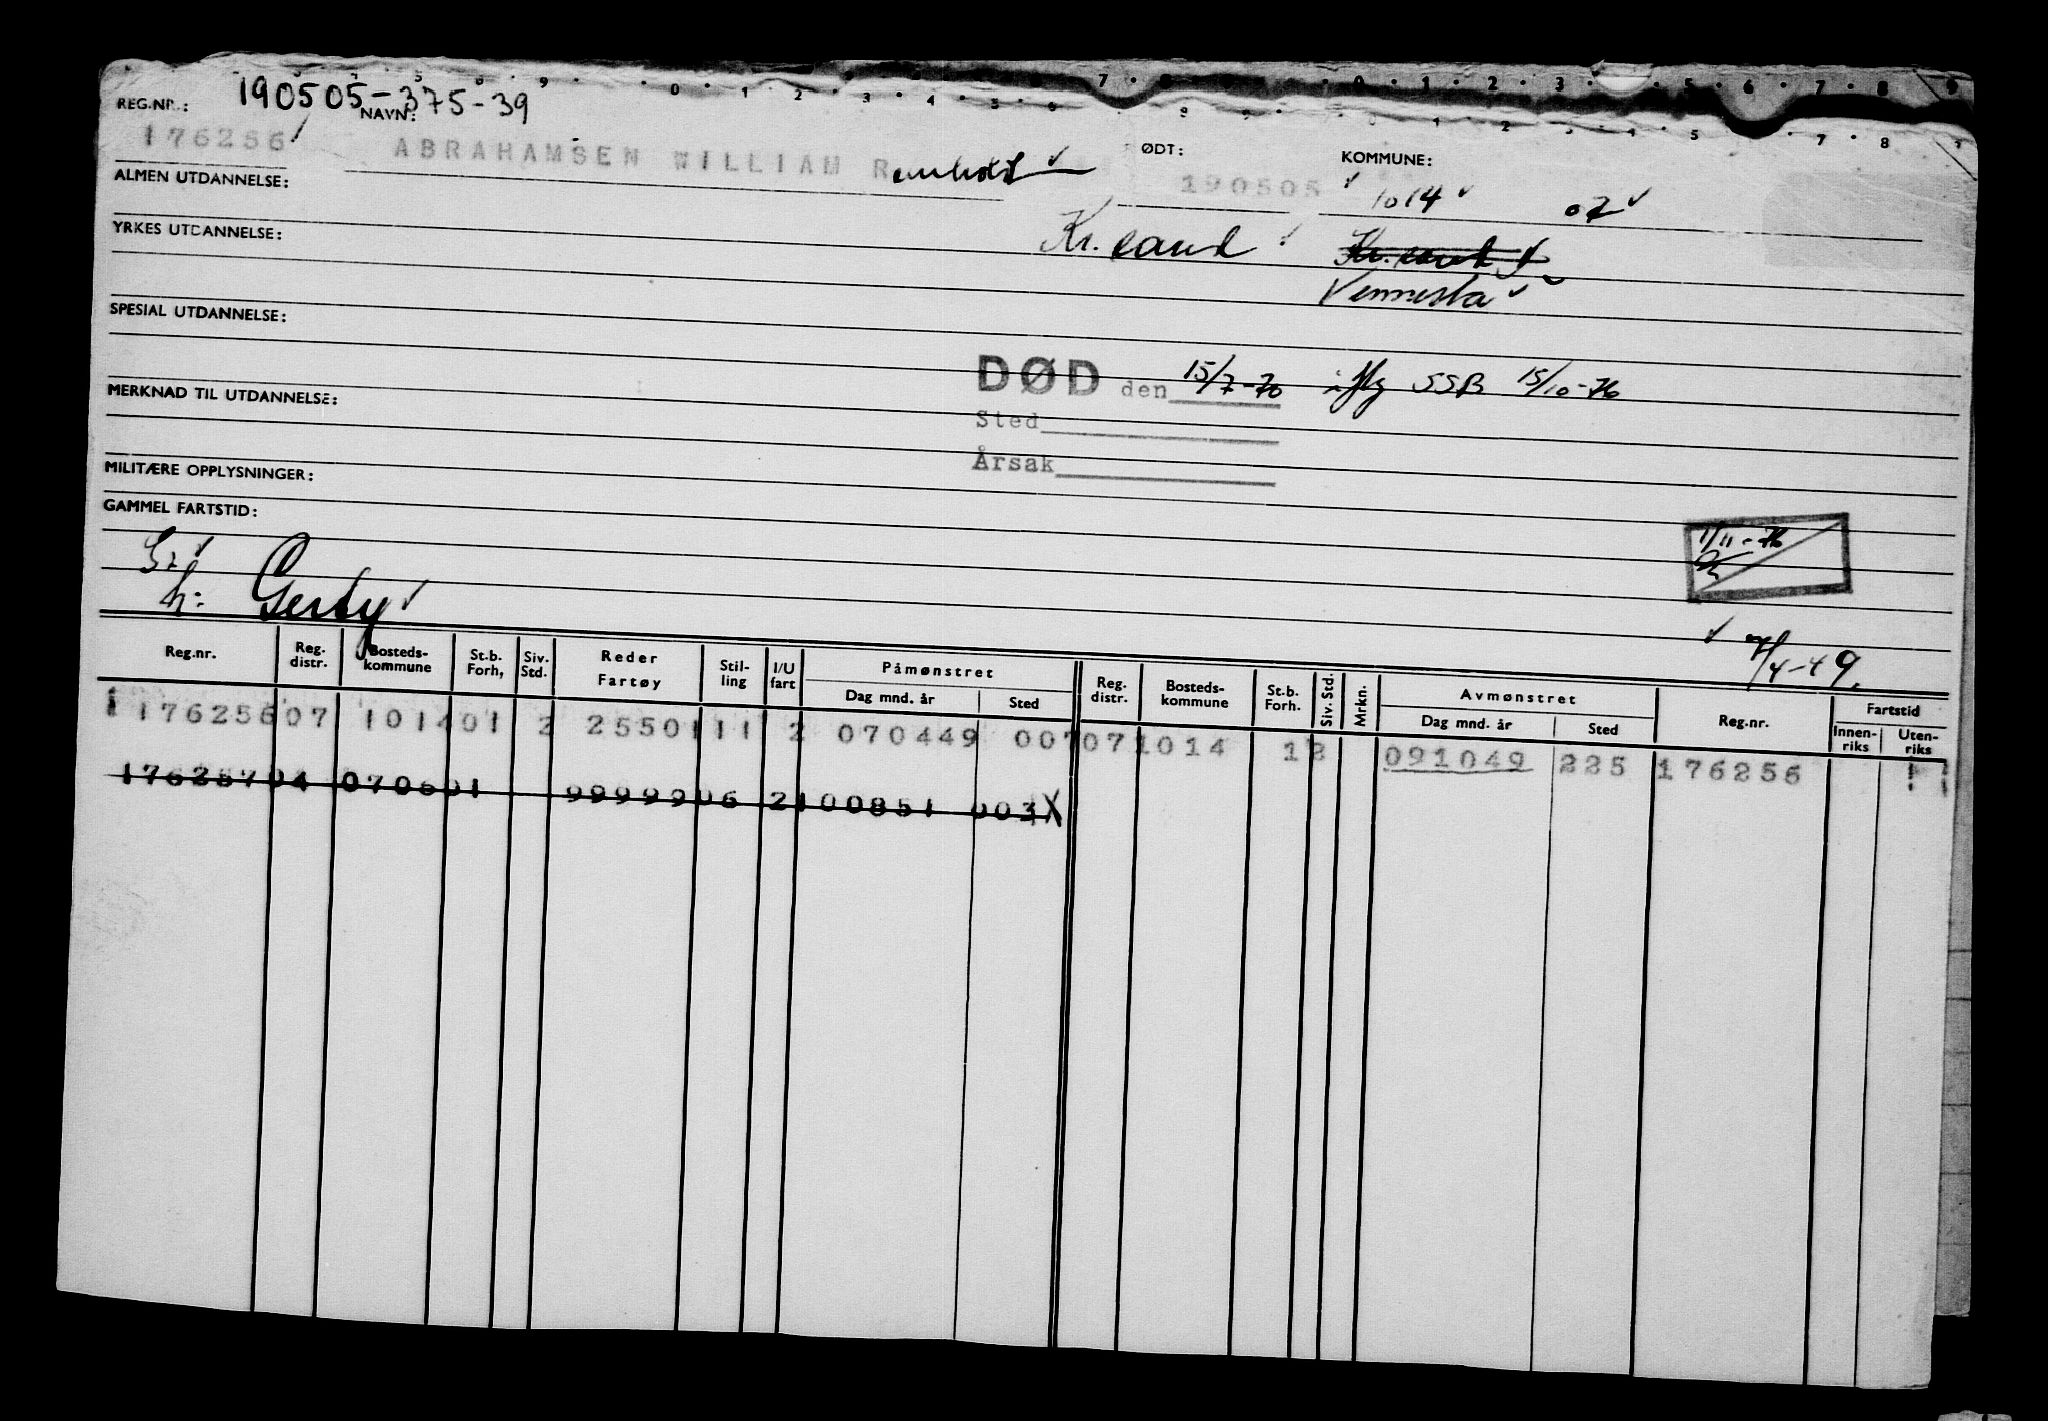 190505-375-39
REG.NR.: NAVN: ØDT: KOMMUNE:
176256 ABRAHAMSEN WILLIAM R 190505 1014 02
ALMEN UTDANNELSE:
YRKES UTDANNELSE: Kr.sand Kr.sand
Vennesla
SPESIAL UTDANNELSE:
DØD den 15/7-70 iflg SSB 15/10-76
MERKNAD TIL UTDANNELSE:
Sted
Årsak
MILITÆRE OPPLYSNINGER:
GAMMEL FARTSTID:
1/11-76
h: Gerby
7/4-49.
Reg.nr. Reg. distr. Bosteds-kommune St.b. Forh, Siv. Std. Reder Fartøy Stil-ling I/U fart Påmønstret Dag mnd. år Sted Reg. distr. Bosteds-kommune St.b. Forh. Siv. Std. Mrkn. Avmønstret Dag mnd. år Sted Reg.nr. Fartstid Innen-riks Uten-riks
1 176256 07 1014 01 2 2550 111 2 070449 007 07 1014 1 2 091049 225 176256 1 1
176257 04 0706 01 99999 06 2 100851 003 X